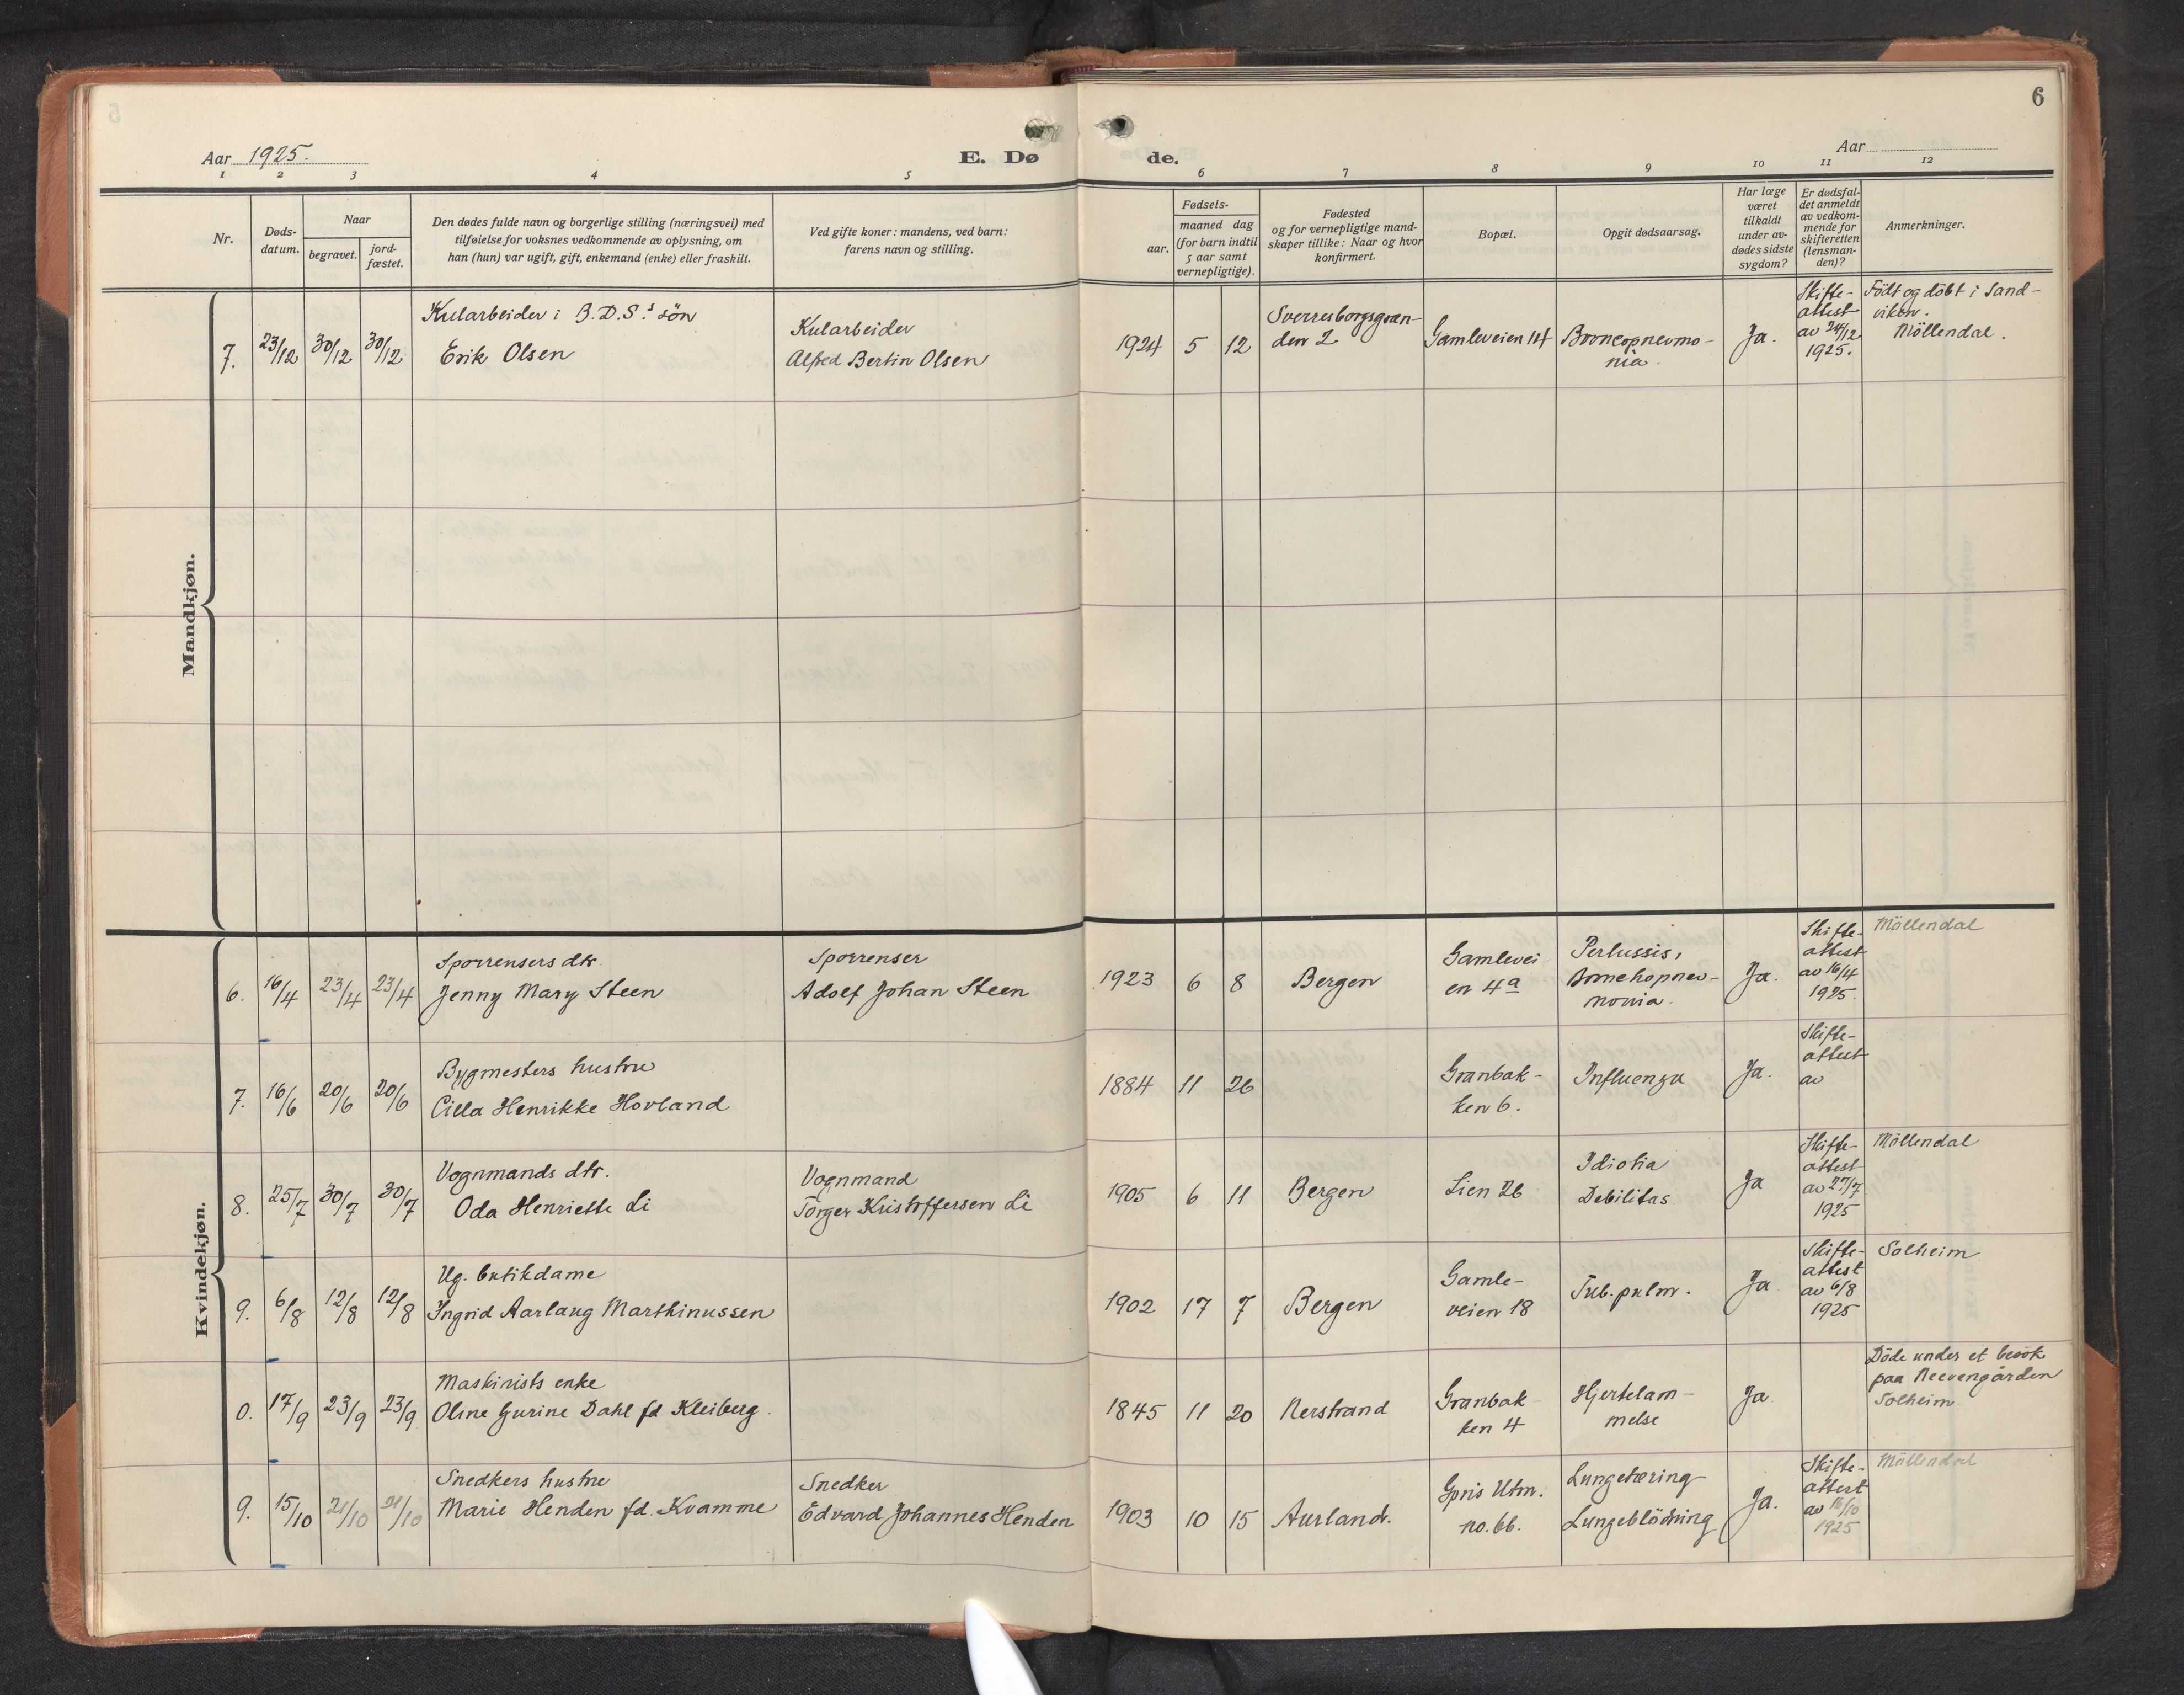 6
Aar 1925.
E. Dø
de.
Aar
1 2 3 4 5 6 7 8 9 10 11 12
Nr.
Døds-
datum.
Naar
begravet.
jord-
fæstet.
Den dødes fulde navn og borgerlige stilling (næringsvei) med
tilføielse for voksnes vedkommende av oplysning, om
han (hun) var ugift, gift, enkemand (enke) eller fraskilt.
Ved gifte koner: mandens, ved barn:
farens navn og stilling.
Fødsels-
aar.
maaned dag
(for barn indtil
5 aar samt
vernepligtige).
Fødested
og for vernepligtige mand-
skaper tillike: Naar og hvor
konfirmert.
Bopæl.
Opgit dødsaarsag.
Har læge
været
tilkaldt
under av-
dødes sidste
sygdom?
Er dødsfal-
det anmeldt
av vedkom-
mende for
skifteretten
(lensman-
den)?
Anmerkninger.
Mandkjøn.
7.
23/12
30/12
30/12
Kularbeider i B.D.S.s sön
Erik Olsen
Kularbeider
Alfred Bertin Olsen
1924 5 12
Sverresborgsgræn-
den 2
Gamleveien 14
Broncopnevmo-
nia.
Ja.
Skifte-
attest
av 24/12
1925.
Födt og döbt i Sand-
viken.
Möllendal.
Kvindekjøn.
6.
16/4
23/4
23/4
Sporrensers dtr.
Jenny Mary Steen
Sporrenser
Adolf Johan Steen
1923 6 8
Bergen
Gamlevei
en 4a
Pertussis,
Bronchopnev-
monia.
Ja.
Skifte-
attest
av 16/4
1925.
Möllendal
7.
16/6
20/6
20/6
Bygmesters hustru
Cilla Henrikke Hovland
1884 11 26
Granbak-
ken 6.
Influenza
Ja.
Skifte-
attest
av
8.
25/7
30/7
30/7
Vognmands dtr.
Oda Henriette Li
Vognmand
Torger Kristoffersen Li
1905 6 11
Bergen
Lien 26
Idiotia
Debilitas
Ja
Skifte-
attest
av 27/7
1925
Möllendal
9.
6/8
12/8
12/8
Ug. butikdame
Ingrid Aarlaug Marthinussen
1902 17 7
Bergen
Gamle-
veien 18
Tub. pulm.
Ja.
Skifte-
attest
av 6/8
1925
Solheim
0.
17/9
23/9
23/9
Maskinists enke
Oline Gurine Dahl fd Kleiberg.
1845 11 20
Nerstrand
Granbak
ken 4
Hjertelam-
melse
Ja.
Döde under et besök
paa Neevengården
Solheim.
9.
15/10
21/10
21/10
Snedkers hustru
Marie Henden fd. Kvamme
Snedker
Edvard Johannes Henden
1903 10 15
Aurland.
Utm.
no. 6b.
Lungetæring
Lungeblödning
Ja.
Skifte-
attest
av 16/10
1925
Möllendal